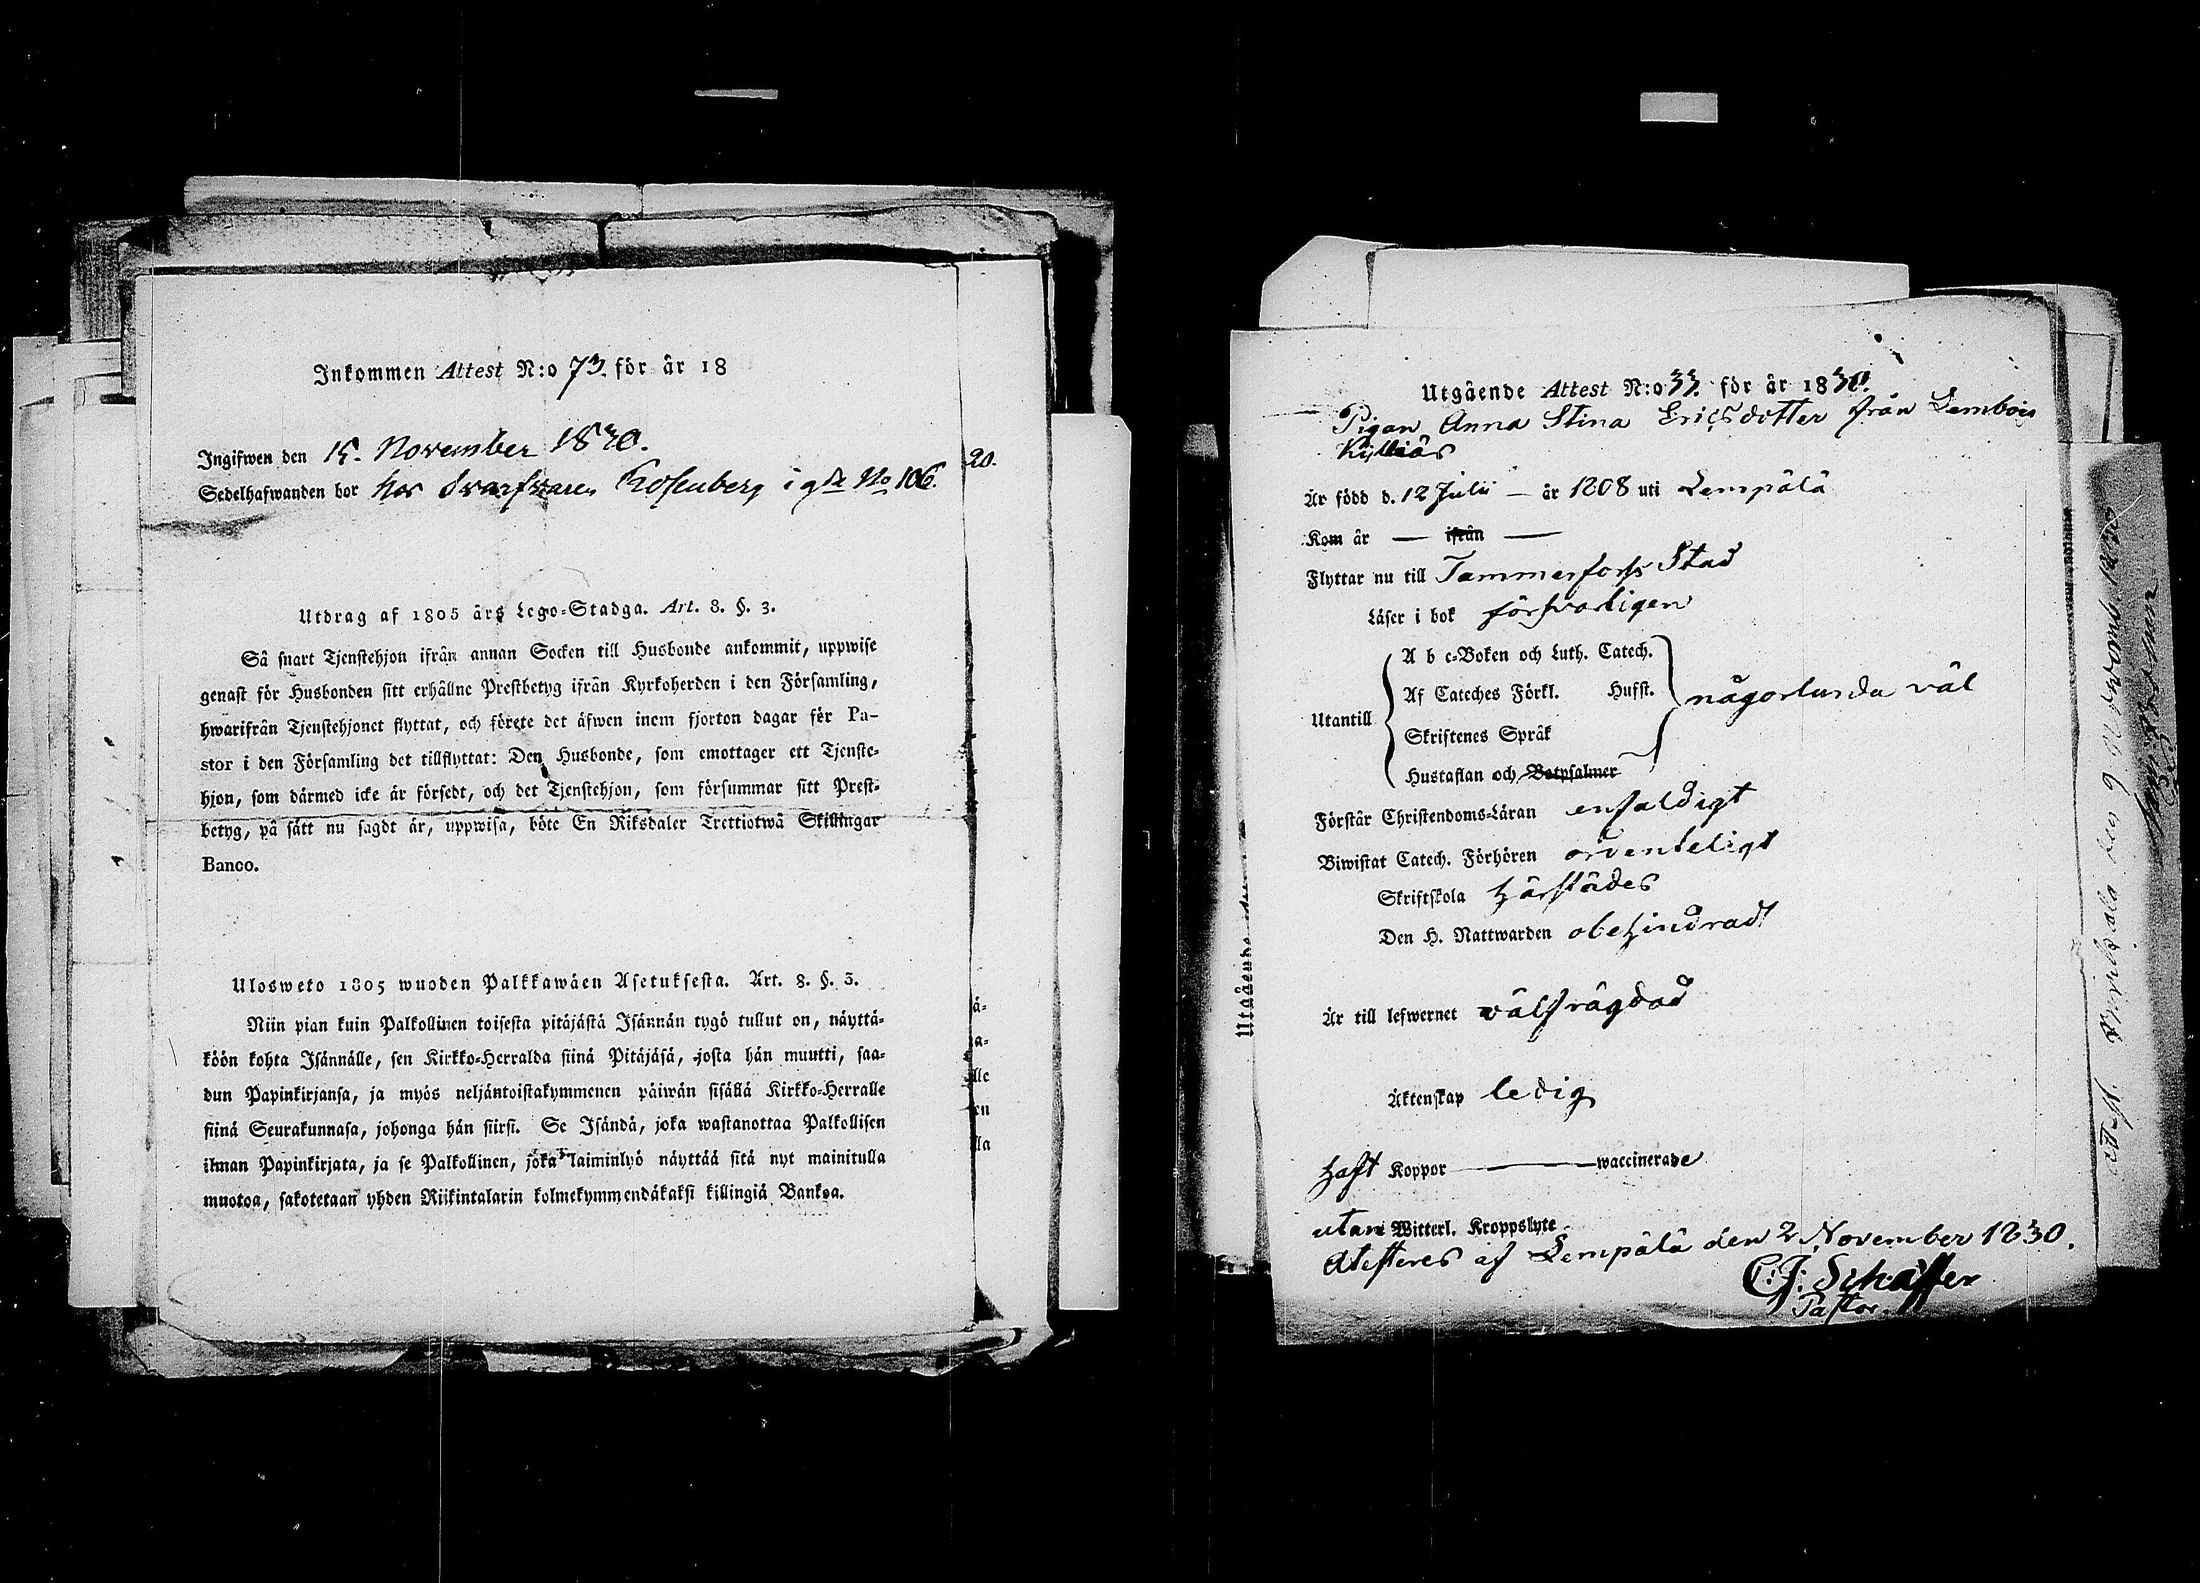 Inkommen Attest N:o 73. för år 18
Ingifwen den 15. November 1830.
Sedelhafwanden bor hos Swarfwaren Rosenberg i gde No 106.
20.
Utdrag af 1805 års Lego-Stadga. Art. 8. §. 3.
Så snart Tjenstehjon ifrån annan Socken till Husbonde ankommit, uppwise
genast för Husbonden sitt erhållne Prestbetyg ifrån Kyrkoherden i den Församling,
hwarifrån Tjenstehjonet flyttat, och förete det äfwen inom fjorton dagar för Pa-
stor i den Församling det tillflyttat: Den Husbonde, som emottager ett Tjenste-
hjon, som därmed icke är försedt, och det Tjenstehjon, som försummar sitt Prest-
betyg, på sätt nu sagdt är, uppwisa, böte En Riksdaler Trettiotwå Skillingar
Banco.
Ulosweto 1805 wuoden Palkkawäen Asetuksesta. Art. 8. §. 3.
Niin pian kuin Palkollinen toisesta pitäjästä Isännän tygö tullut on, näyttä-
köön kohta Isännälle, sen Kirkko-Herralda siinä Pitäjäsä, josta hän muutti, saa-
dun Papinkirjansa, ja myös neljäntoistakymmenen päiwän sisällä Kirkko-Herralle
siinä Seurakunnasa, johonga hän siirsi. Se Isändä, joka wastanottaa Palkollisen
ilman Papinkirjata, ja se Palkollinen, joka laiminlyö näyttää sitä nyt mainitulla
muotoa, sakotetaan yhden Riikintalarin kolmekymmendäkaksi killingiä Bankoa.
Utgående Attest N:o 33. för år 1830.
Pigan Anna Stina Ericsdotter från Lembois
Killiäs
Är född d. 12 Julii — år 1808 uti Lempälä
Kom år — ifrån —
Flyttar nu till Tammerfors Stad
Läser i bok försvarligen
A b c-Boken och Luth. Catech.
Af Cateches Förkl. Husst.
Utantill någorlunda väl
Skriftenes Språk
Hustaflan och Botpsalmer
Förstår Christendoms-Läran enfaldigt
Biwistat Catech. Förhören ordenteligt
Skriftskola härstädes
Den H. Nattwarden obehindradt
Är till lefwernet välfrägdad
Äktenskap ledig
haft Koppor — waccinerade
utan Witterl. Kroppslyte
Atesteres af Lempälä den 2 November 1830.
C. J. Schäffer
Pastor.